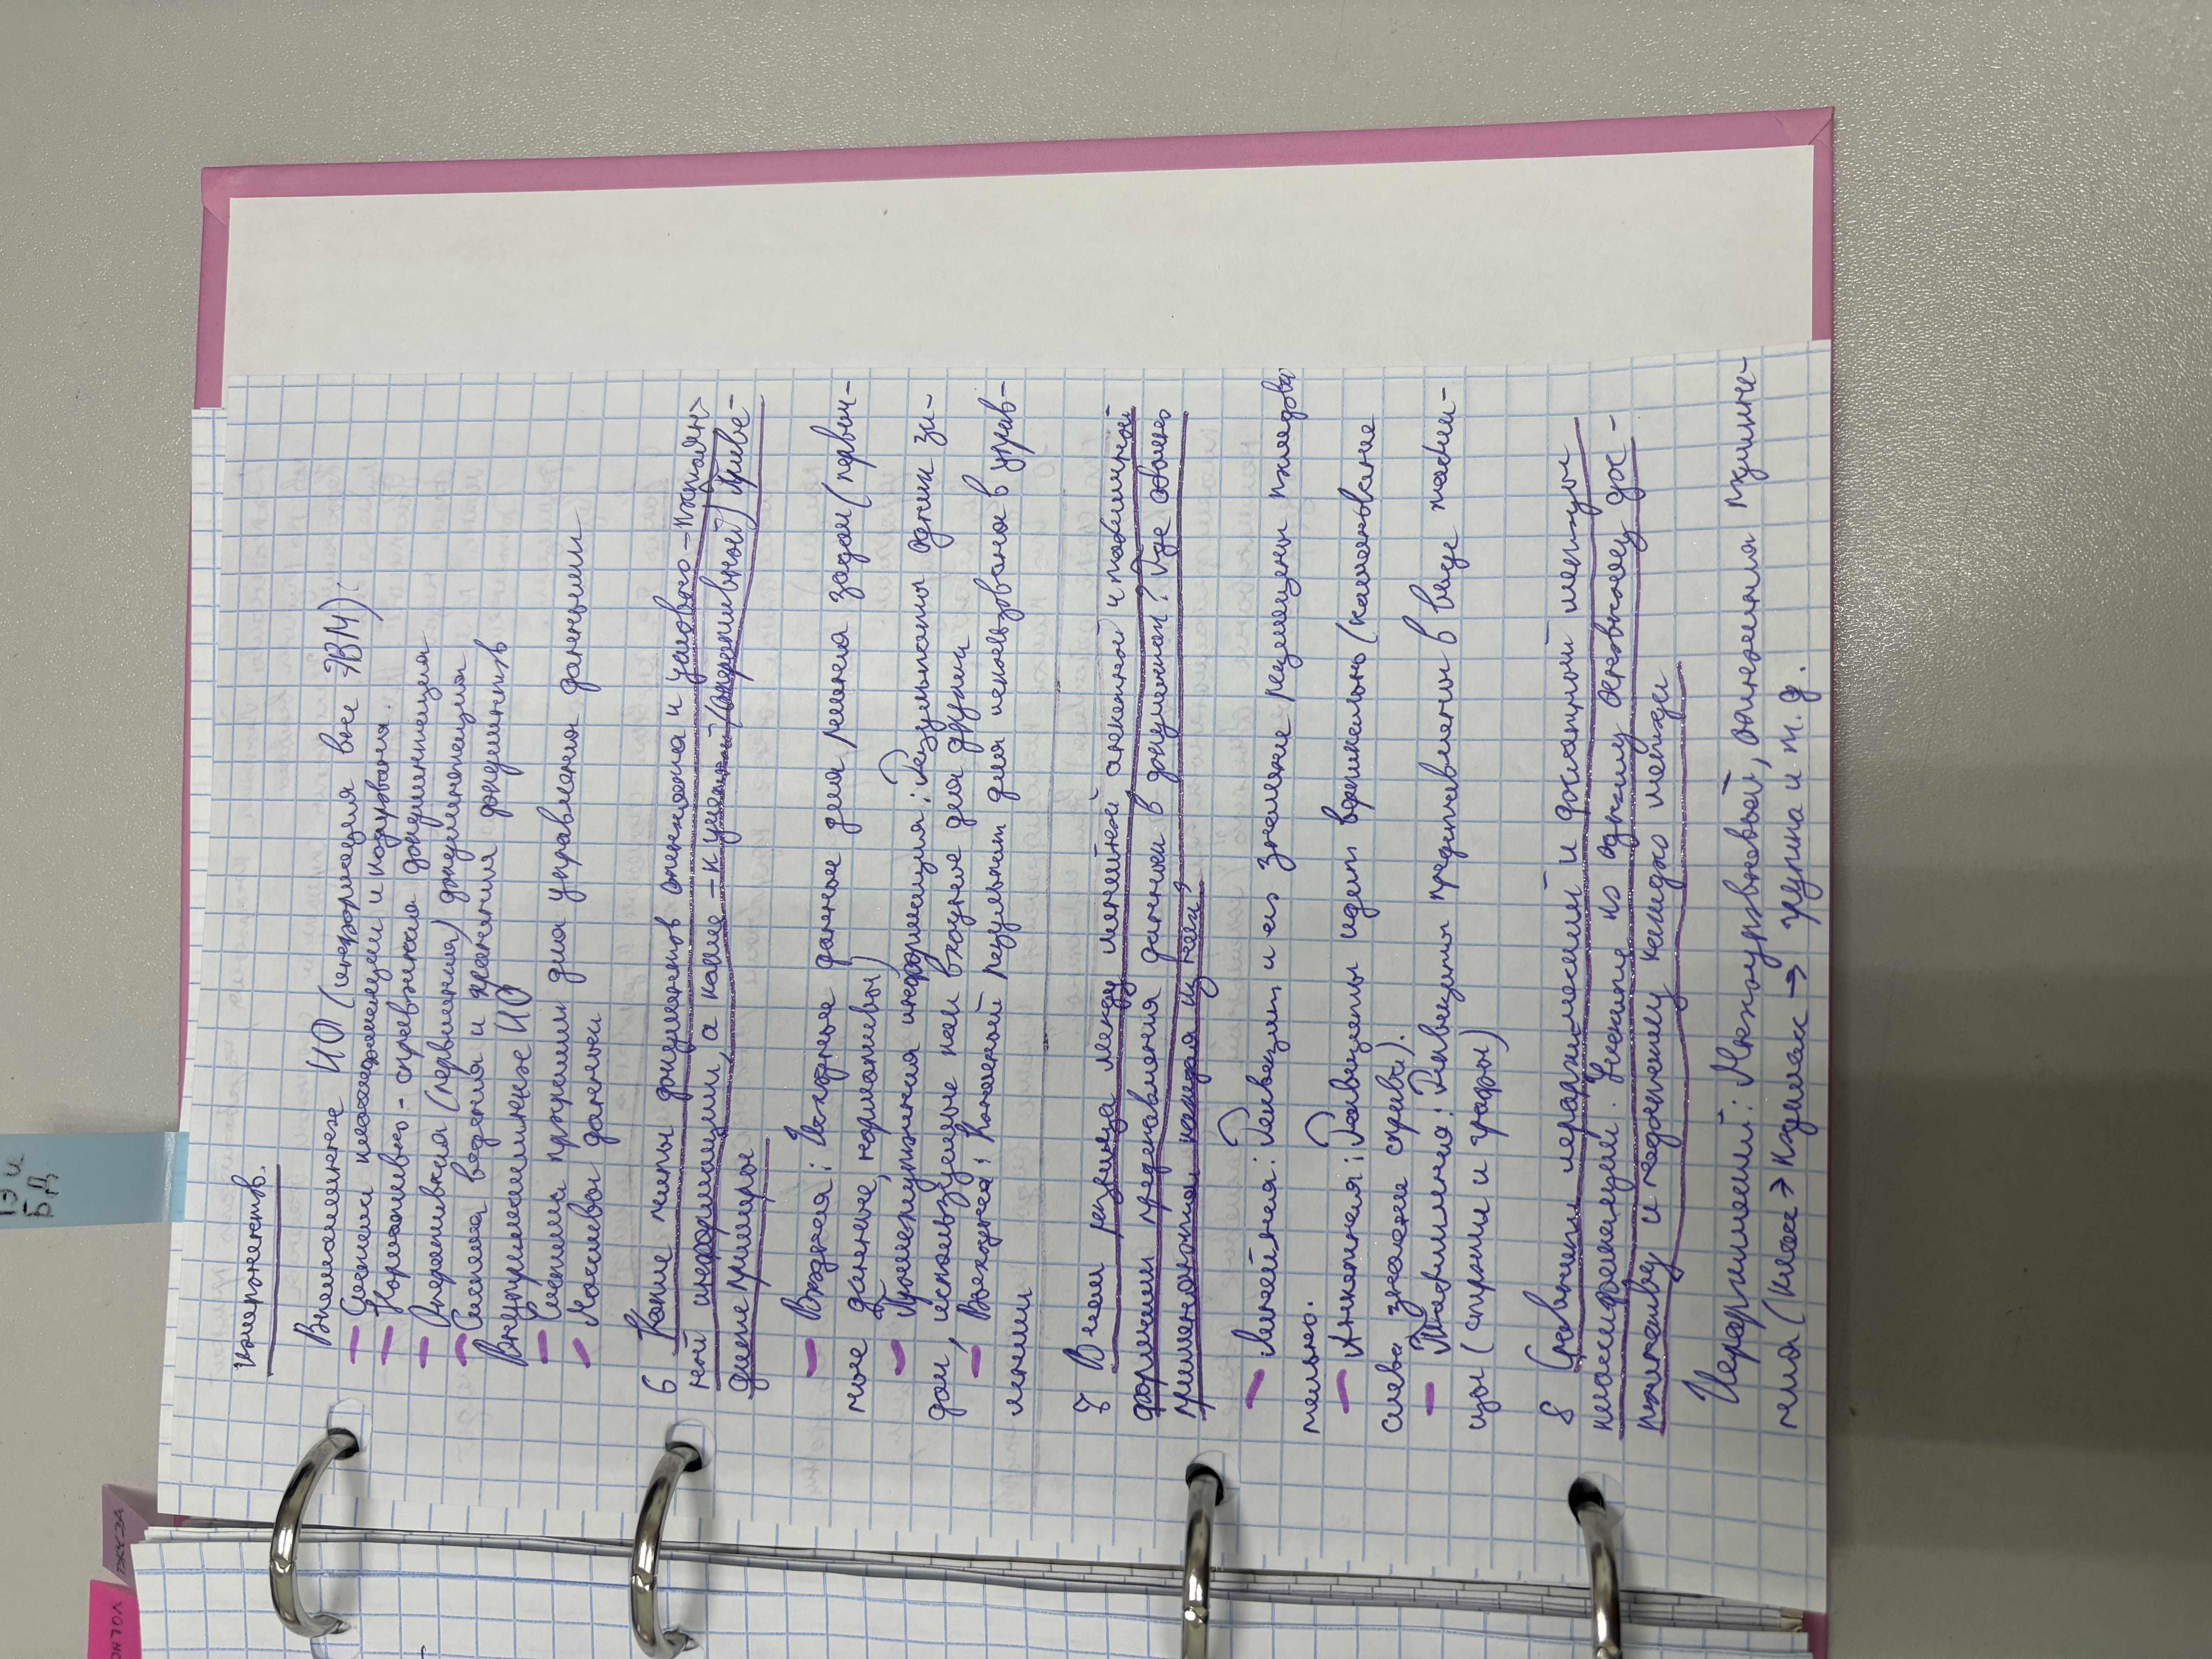 компонентов.
Внемашинное ИО (информация вне ЭВМ):
- Система классификации и кодирования.
- Нормативно-справочная документация
- Оперативная (первичная) документация
- Система ведения и хранения документов
Внутримашинное ИО
- Система программ для управления данными
- Массивы данных
6 Какие типы документов относятся к условно-постоян-
ной информации, а какие - к учетной (оперативной) Приве-
дите примеры
- Входная: Исходные данные для решения задач (первич-
ные данные, нормативы)
- Промежуточная информация: Результаты одних за-
дач, используемые как входные для других
- Выходная: Конечный результат для использования в управ-
лении
7 В чем разница между линейной анкетной и табличной
формами представления данных в документах? Где обычно
применяются каждая из них?
- Линейная: Реквизит и его значение размещены последова
тельно.
- Анкетная: Реквизиты идет вертикально (наименование
слева значение справа).
- Табличная: Реквизиты представлены в виде табли-
цы (строки и графы)
8 Сравните иерархический и фасетный методы
классификации. Укажите по одному основному дос-
тоинству и недостатку каждого метода
Иерархический: Многоуровневый, от подчинё-
ния (Класс → подкласс → группа и т.д.
ТЭИ
БД